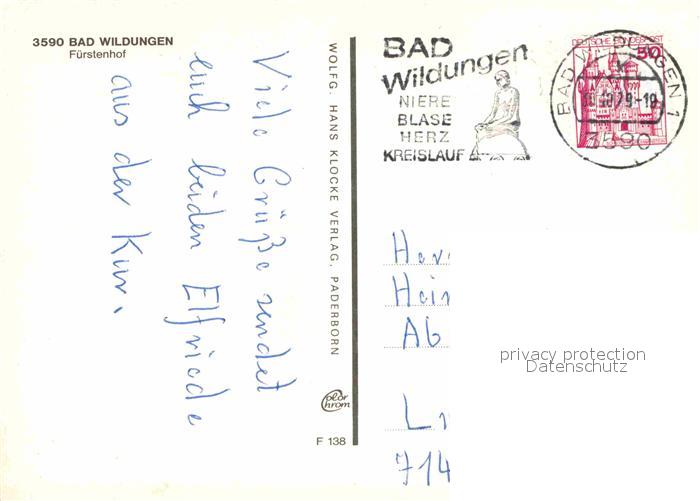 3590 BAD WILDUNGEN
Fürstenhof
Viele Grüße sendet
euch beiden Elfriede
aus der Kur.
WOLFG. HANS KLOCKE VERLAG, PADERBORN
color
chrom
F 138
BAD
Wildungen
NIERE
BLASE
HERZ
KREISLAUF
DEUTSCHE BUNDESPOST
50
BAD WILDUNGEN 1
3590
Her
Hein
Ab
L
714
privacy protection
Datenschutz